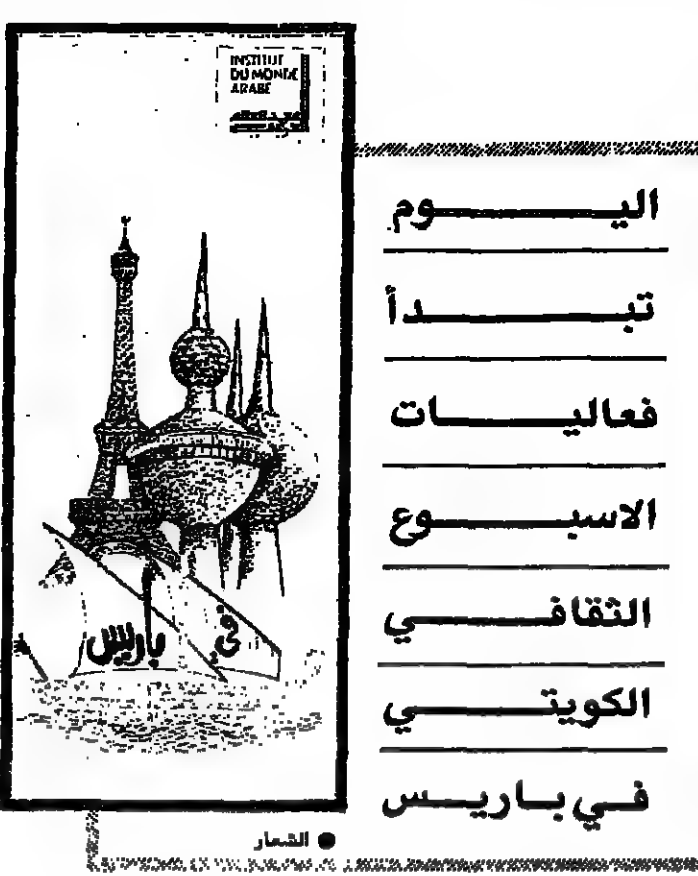 INSTITUT
DU MONDE
ARABE
في باريس
اليوم
تبدأ
فعاليات
الاسبوع
الثقافي
الكويتي
في باريس
الشعار